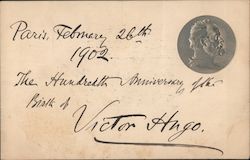 Paris, February 26th
1902.
The Hundredth Anniversary of the
Birth of
Victor Hugo.